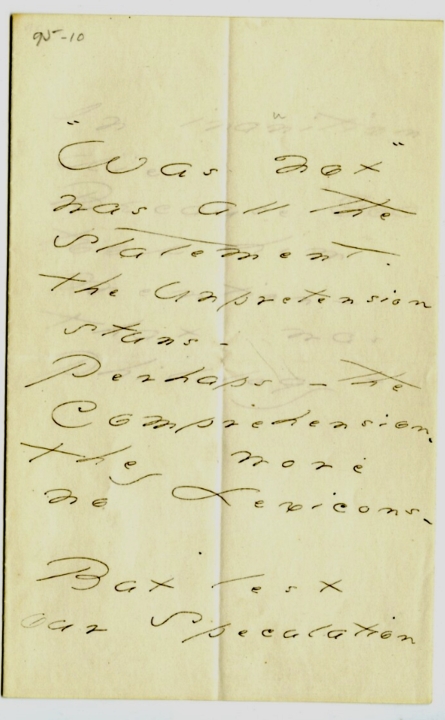 95-10
"Was not"
was all the
Statement.
the Unpretension
stuns -
Perhaps - the
Comprehension -
they wore
no Lexicons -
But lest
our Speculation